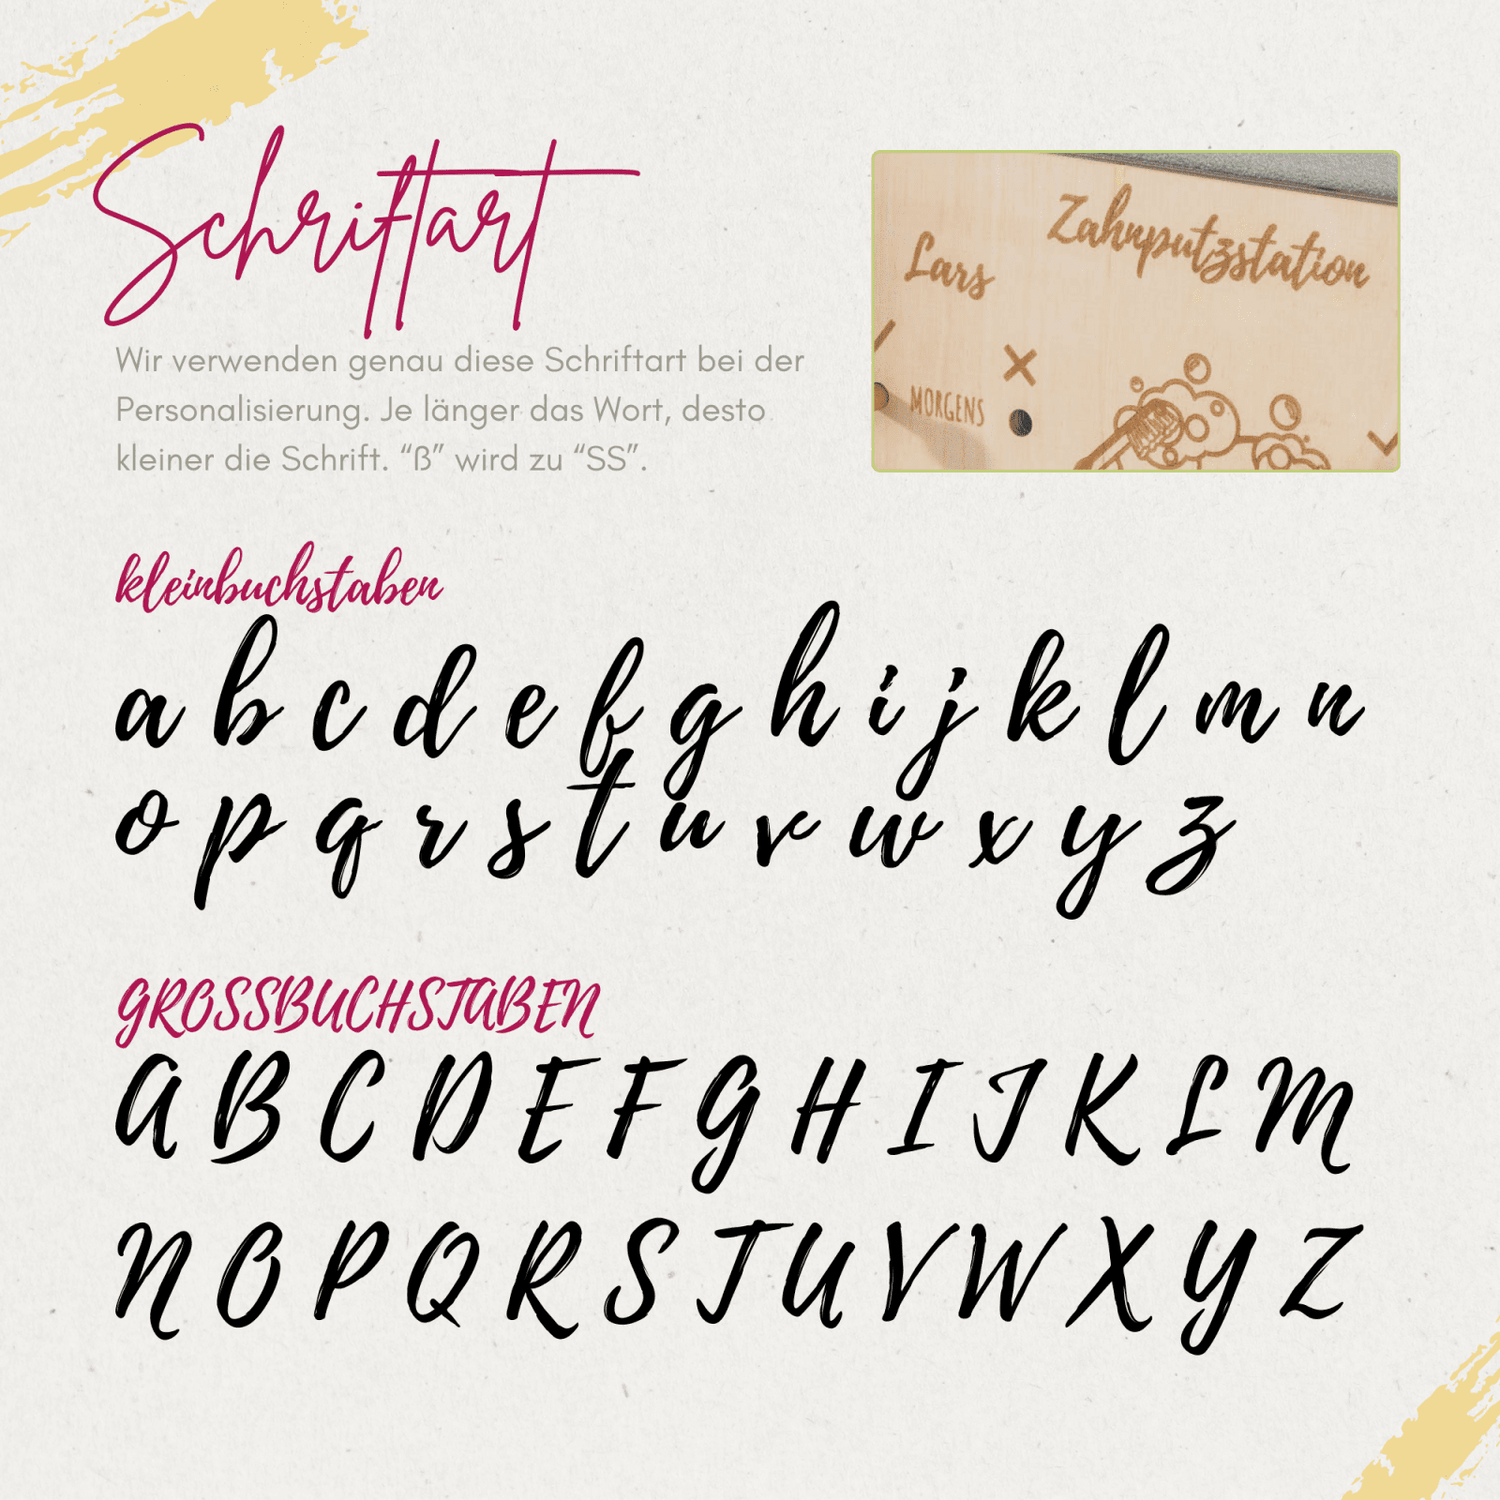 Schriftart
Wir verwenden genau diese Schriftart bei der
Personalisierung. Je länger das Wort, desto
kleiner die Schrift. “ß” wird zu “SS”.
Zahnputzstation
Lars
MORGENS
kleinbuchstaben
a b c d e f g h i j k l m n
o p q r s t u v w x y z
GROSSBUCHSTABEN
A B C D E F G H I J K L M
N O P Q R S T U V W X Y Z